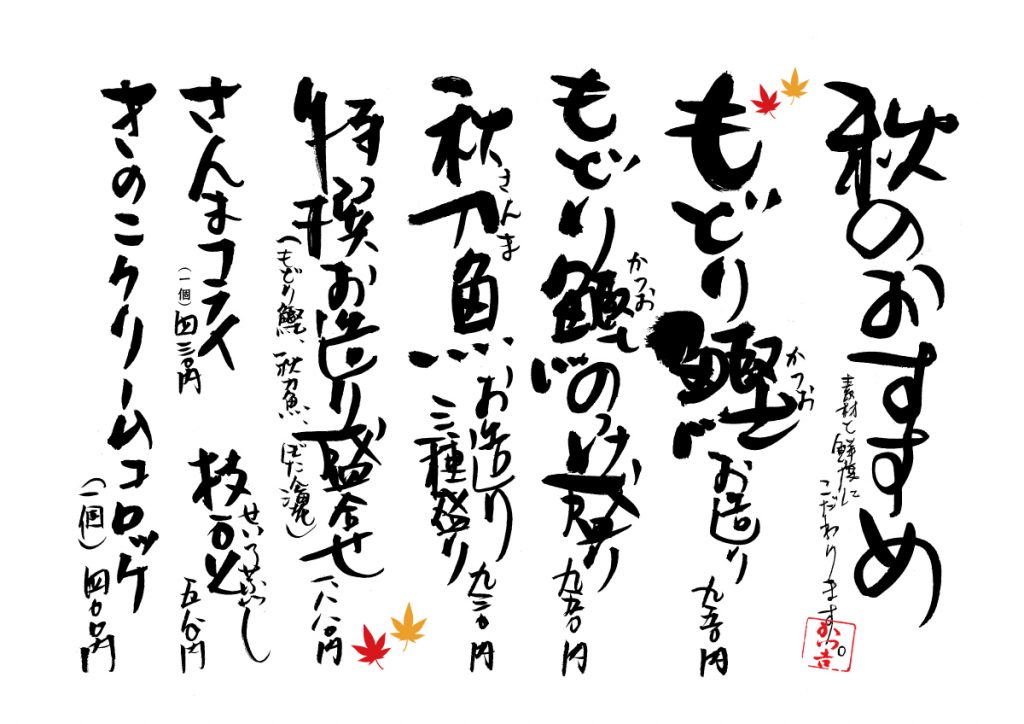 秋のおすすめ
素材と鮮度に
こだわります。
もどり鰹お造り 九五〇円
かつお
もどり鰹のっけ盛り 九五〇円
かつお
秋刀魚お造り
さんま
三種盛り 九三〇円
特撰お造り盛合せ 一八八〇円
(もどり鰹、秋刀魚、ぼたん海老)
さんまコライ
(一個)四三〇円
枝豆せいろ蒸し 五八〇円
きのこクリームコロッケ
(一個)四〇〇円